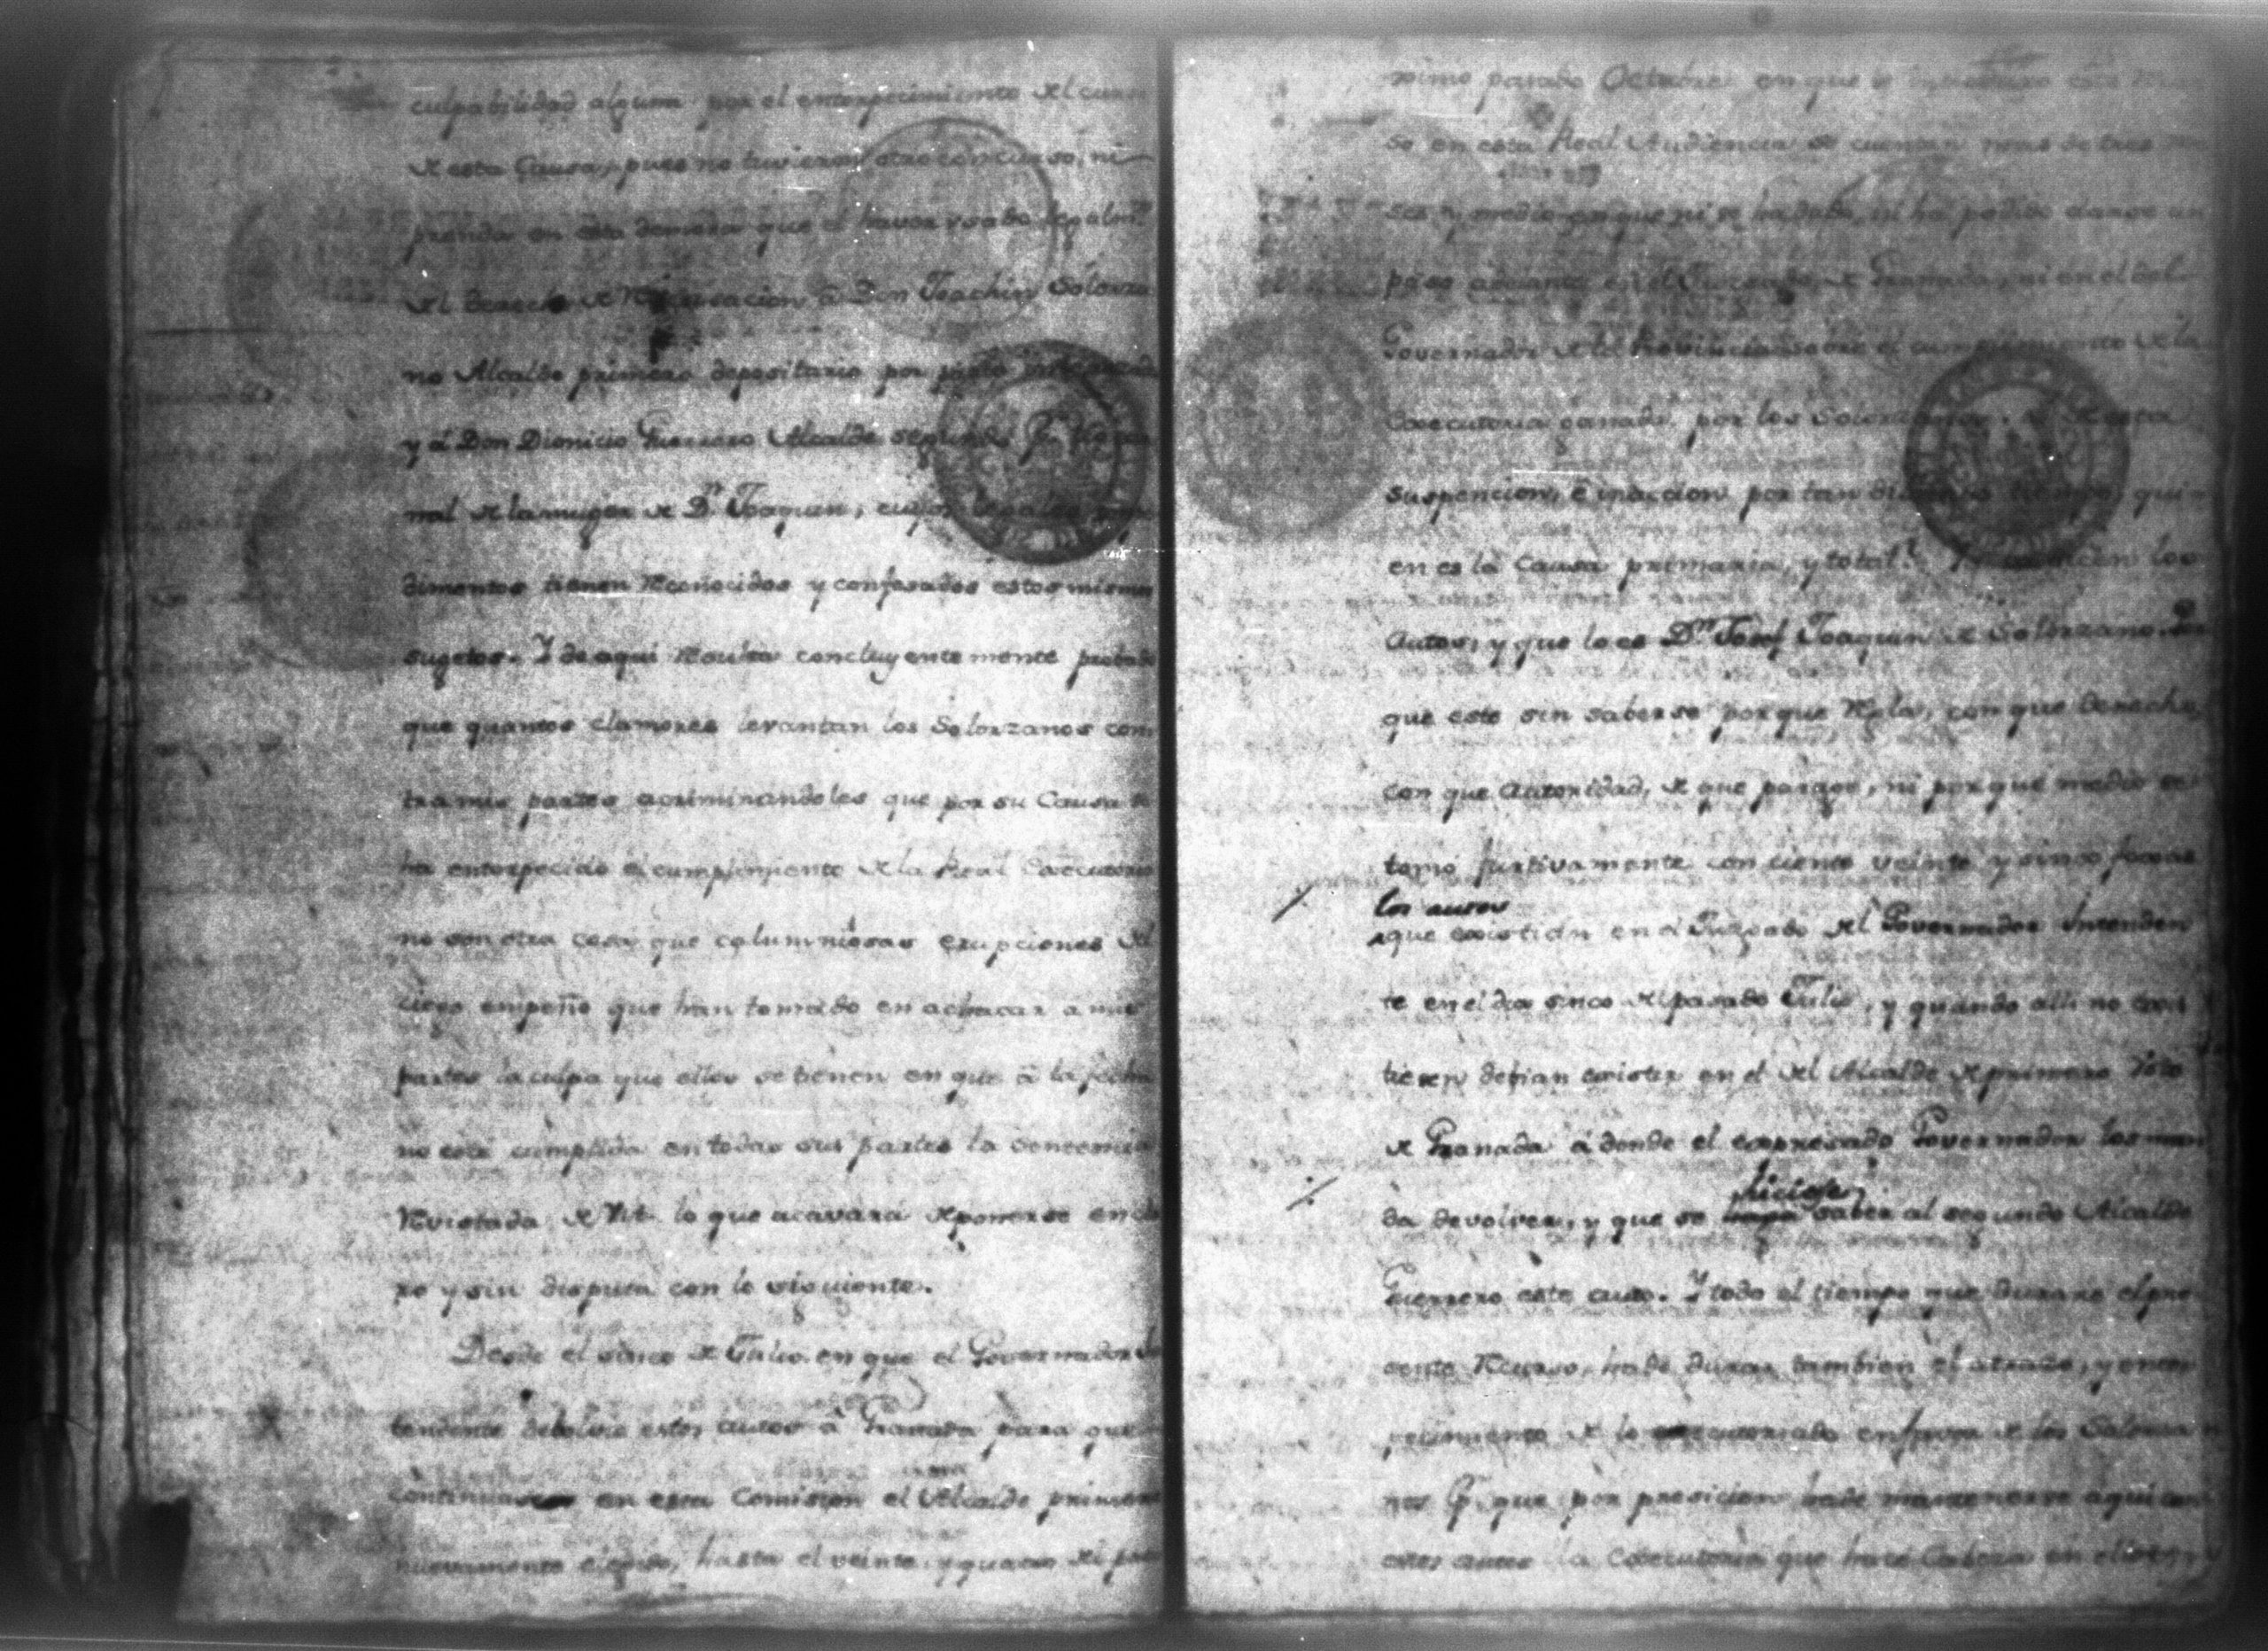 culpabilidad alguna por el entorpecimiento del cur
de esta Causa, pues no tuvieron otro concurso, ni
prenda en esta demora que el haver usado legalmte
del derecho de Recusacion à Don Joachin Solorza
no Alcalde primero depositario por
y á Don Dionicio Guerrero Alcalde segundo p.
nal de la muger de Dn. Joaquin, cuyos legales
dimentos tienen Reconocidos y confesados estos mismos
sugetos. Y de aqui Resulta concluyentemente probado
que quantos clamores levantan los Solorzanos con
tra mis partes acriminandoles que por su Causa se
ha entorpecido el cumplimiento de la Real Executoria
no son otra cosa que calumniosas erupciones del
ciego empeño que han tomado en achacar a mis
partes la culpa que ellos se tienen en que à la fecha
no esté cumplida en todas sus partes la sentencia
Revistada de lo que acavará de ponerse en cla
ro y sin disputa con lo siguiente.
Desde el sinco de Julio en que el Governador In
tendente debolvió estos autos à Granada para que
continuase en esta Comision el Alcalde primero
nuevamente elegido, hasta el veinte y quatro del pro
ximo pasado Octubre en que se introduxo este Recur
so en esta Real Audiencia se cuentan mas de tres me
ses y medio en que ni se ha dado, ni ha podido darse un
paso adelante en el Juzgado de Granada, ni en el del
Governador de la Provincia sobre el cumplimiento de la
Executoria ganada por los Solorzanos. De esta
suspencion, é inaccion por tan tiempo, qui
en es la Causa primaria, y total? los
Autos, y que lo es Dn. Josef Joaquin de Solorzano.
que este sin saberse porque Regla, con que derecho,
con que Autoridad, de que parage, ni por qué medio se
tomó furtivamente con ciento veinte y sinco foxas
los autos
que existian en el Juzgado del Governador Intenden
te en el dia sinco del pasado Julio, y quando alli no exis
tiesen debian existir en el del Alcalde de primero Voto
de Granada á donde el expresado Governador los man
hiciese
da devolver, y que se haga saber al segundo Alcalde
Guerrero este auto. Y todo el tiempo que durare el pre
sente Recurso, ha de durar tambien el atraso, y entor
pecimiento de lo executoriado en favor de los Solorza
nos p. que por presicion ha de mantenerse aqui con
estos autos la Executoria que hace Cabeza en ellos